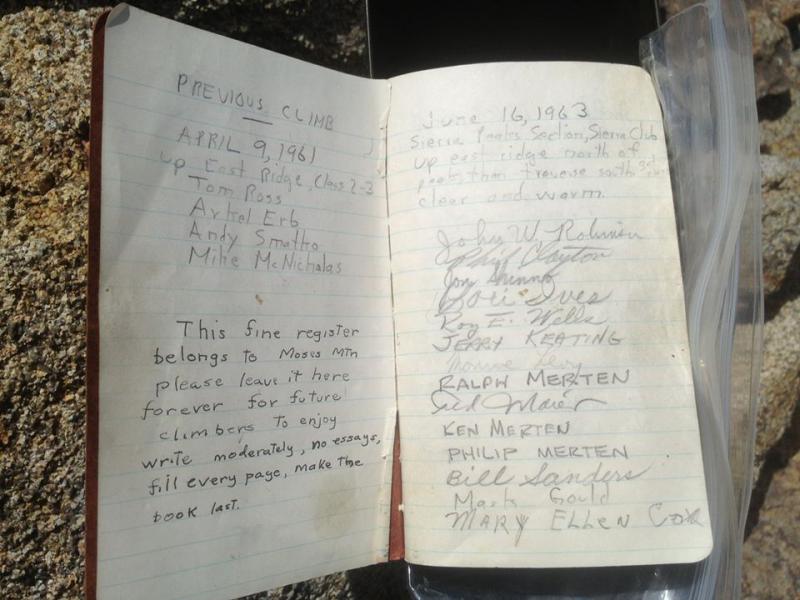 PREVIOUS CLIMB
APRIL 9, 1961
up East Ridge, Class 2-3
Tom Ross
Arkel Erb
Andy Smatko
Mike McNicholas
This fine register
belongs to Moses Mtn
please leave it here
forever for future
climbers to enjoy
write moderately, no essays,
fill every page, make the
book last.
June 16, 1963
Sierra Peaks Section, Sierra Club
up east ridge north of
peak, than traverse south
clear and warm.
John W. Robinson
Phil Clayton
Jon Shinno
Ives
Roy E. Wells
JERRY KEATING
Levy
RALPH MERTEN
Maier
KEN MERTEN
PHILIP MERTEN
Bill Sanders
Mark Gould
MARY ELLEN Cox